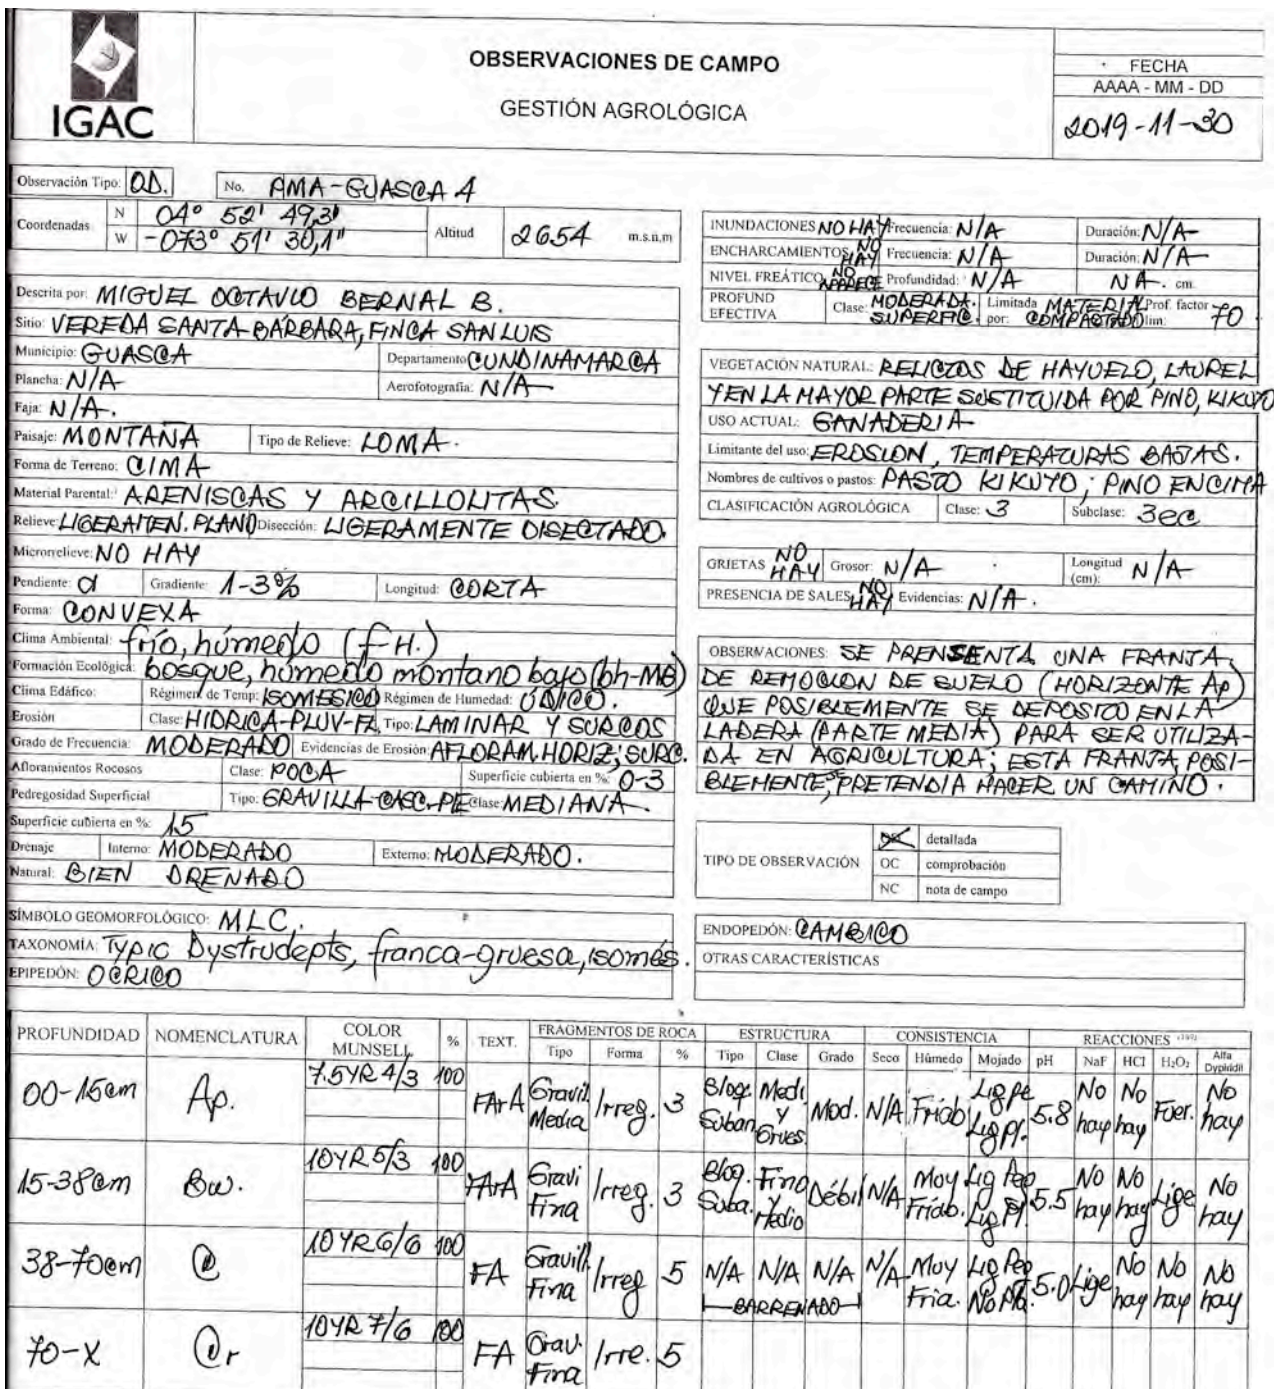 IGAC
OBSERVACIONES DE CAMPO
GESTIÓN AGROLÓGICA
FECHA
AAAA - MM - DD
2019-11-30
Observación Tipo: OD. No. AMA-GUASCA 4
Coordenadas N 04° 52' 49,3"
W -073° 51' 30,1"
Altitud 2654 m.s.n.m
Descrita por: MIGUEL OCTAVIO BERNAL B.
Sitio: VEREDA SANTA BÁRBARA, FINCA SAN LUIS
Municipio: GUASCA Departamento CUNDINAMARCA
Plancha: N/A Aerofotografía: N/A
Faja: N/A.
Paisaje: MONTAÑA Tipo de Relieve: LOMA.
Forma de Terreno: CIMA
Material Parental: ARENISCAS Y ARCILLOLITAS
Relieve: LIGERAMEN. PLANO Disección: LIGERAMENTE DISECTADO.
Microrrelieve: NO HAY
Pendiente: a Gradiente: 1-3% Longitud: CORTA
Forma: CONVEXA
Clima Ambiental: frío, húmedo (f-H.)
Formación Ecológica: bosque, húmedo montano bajo (bh-MB)
Clima Edáfico: Régimen de Temp: ISOMESICO Régimen de Humedad: ÚDICO.
Erosión Clase: HIDRICA-PLUV- Tipo: LAMINAR Y SURCOS
Grado de Frecuencia: MODERADO Evidencias de Erosión: AFLORAM. HORIZ; SURC.
Afloramientos Rocosos Clase: POCA Superficie cubierta en %: 0-3
Pedregosidad Superficial Tipo: GRAVILLA-CASC.-PE Clase: MEDIANA.
Superficie cubierta en %: 15
Drenaje Interno: MODERADO Externo: MODERADO.
Natural: BIEN DRENADO
SÍMBOLO GEOMORFOLÓGICO: MLC.
TAXONOMÍA: Typic Dystrudepts, franca-gruesa, isomés.
EPIPEDÓN: OCRICO
INUNDACIONES NO HAY Frecuencia: N/A Duración: N/A
ENCHARCAMIENTOS NO HAY Frecuencia: N/A Duración: N/A
NIVEL FREÁTICO NO APARECE Profundidad: N/A NA. cm.
PROFUND EFECTIVA Clase: MODERADA. SUPERFIC. Limitada por: MATERIAL COMPACTADO Prof. factor lim: 70
VEGETACIÓN NATURAL: RELICTOS DE HAYUELO, LAUREL
Y EN LA MAYOR PARTE SUSTITUIDA POR PINO, KIKUYO
USO ACTUAL: GANADERIA
Limitante del uso: EROSION, TEMPERATURAS BAJAS.
Nombres de cultivos o pastos: PASTO KIKUYO; PINO ENCIMA
CLASIFICACIÓN AGROLÓGICA Clase: 3 Subclase: 3ec
GRIETAS NO HAY Grosor: N/A Longitud (cm): N/A
PRESENCIA DE SALES NO HAY Evidencias: N/A.
OBSERVACIONES: SE PRENSENTA UNA FRANJA
DE REMOCION DE SUELO (HORIZONTE Ap)
QUE POSIBLEMENTE SE DEPOSITO EN LA
LADERA (PARTE MEDIA) PARA SER UTILIZA-
DA EN AGRICULTURA; ESTA FRANJA, POSI-
BLEMENTE, SE PRETENDIA HACER UN CAMINO.
TIPO DE OBSERVACIÓN
detallada
OC comprobación
NC nota de campo
ENDOPEDÓN: CAMBICO
OTRAS CARACTERÍSTICAS
PROFUNDIDAD NOMENCLATURA COLOR MUNSELL % TEXT. FRAGMENTOS DE ROCA ESTRUCTURA CONSISTENCIA REACCIONES
Tipo Forma % Tipo Clase Grado Seco Húmedo Mojado pH NaF HCl H₂O₂ Alfa Dypiridil
00-15cm Ap. 7.5YR 4/3 100 FArA Gravill Media Irreg. 3 Bloq. Suban Medi y Grues Mod. N/A Friab Lig pe Lig pl. 5.8 No hay No hay Fuer. No hay
15-38cm Bw. 10YR 5/3 100 FArA Gravi Fina Irreg. 3 Bloq. Suba. Fino y Medio Débil N/A Muy Friab. Lig Peg Lig Pl. 5.5 No hay No hay Lige No hay
38-70cm C 10YR 6/6 100 FA Gravill Fina Irreg 5 N/A N/A N/A N/A Muy Fria. Lig Peg No Pla. 5.0 Lige No hay No hay No hay
BARRENADO
70-X Cr 10YR 7/6 100 FA Grav. Fina Irre. 5